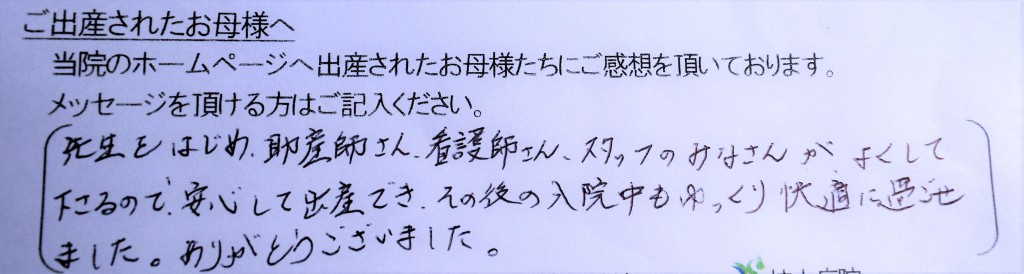 ご出産されたお母様へ
当院のホームページへ出産されたお母様たちにご感想を頂いております。
メッセージを頂ける方はご記入ください。
先生をはじめ、助産師さん、看護師さん、スタッフのみなさんが、よくして
下さるので、安心して出産でき、その後の入院中もゆっくり快適に過ごせ
ました。ありがとうございました。